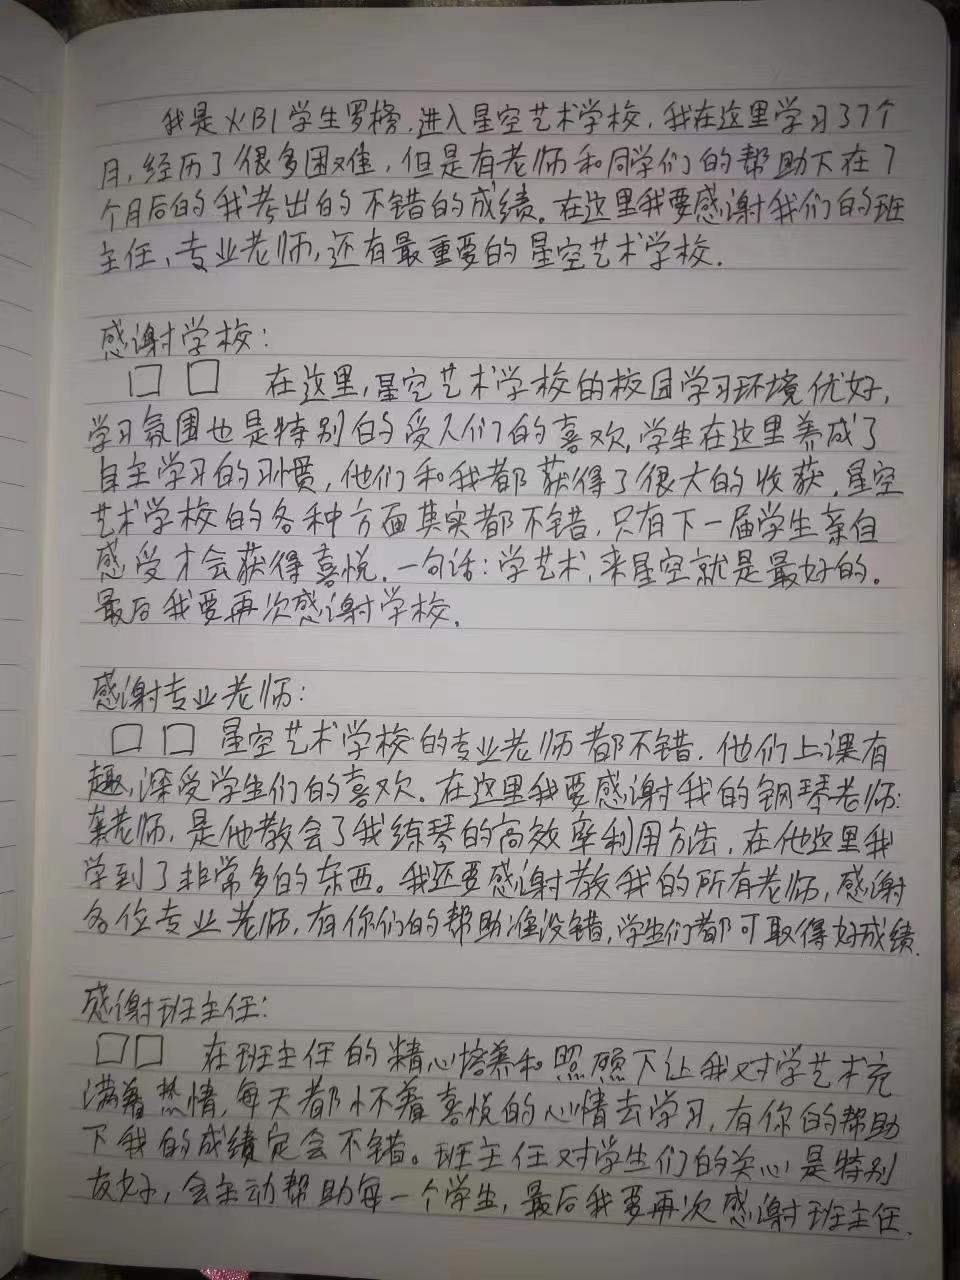 我是火B1学生罗榜,进入星空艺术学校,我在这里学习了7个
月,经历了很多困难,但是有老师和同学们的帮助下在7
个月后的我考出的不错的成绩。在这里我要感谢我们的班
主任、专业老师,还有最重要的星空艺术学校.
感谢学校:
□ □ 在这里,星空艺术学校的校园学习环境优好,
学习氛围也是特别的受人们的喜欢,学生在这里养成了
自主学习的习惯,他们和我都获得了很大的收获,星空
艺术学校的各种方面其实都不错,只有下一届学生亲自
感受才会获得喜悦.一句话:学艺术,来星空就是最好的。
最后我要再次感谢学校.
感谢专业老师:
□ □ 星空艺术学校的专业老师都不错.他们上课有
趣,深受学生们的喜欢.在这里我要感谢我的钢琴老师:
龚老师,是他教会了我练琴的高效率利用方法,在他这里我
学到了非常多的东西。我还要感谢教我的所有老师,感谢
各位专业老师,有你们的帮助准没错,学生们都可取得好成绩.
感谢班主任:
□□ 在班主任的精心培养和照顾下让我对学艺术充
满着热情,每天都怀着喜悦的心情去学习,有你的帮助
下我的成绩定会不错。班主任对学生们的关心是特别
友好,会主动帮助每一个学生,最后我要再次感谢班主任.